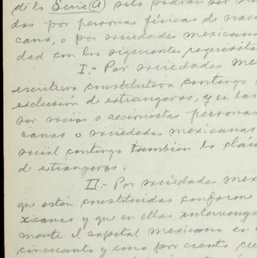 de la Serie (A) solo podrán ser
das por personas físicas de nacio
cana, o por sociedades mexicana
dad con los siguientes requisitos
I.- Por sociedades me
escritura constitutiva contenga
exclusión de extranjeros, y en
por socios o accionistas personas
canas o sociedades mexicanas
social contenga también la cláu
de extranjeros.
II.- Por sociedades mex
que estén constituidas conforme
xicanas y que en ellas intervenga
mente el capital mexicano en
cincuenta y uno por ciento